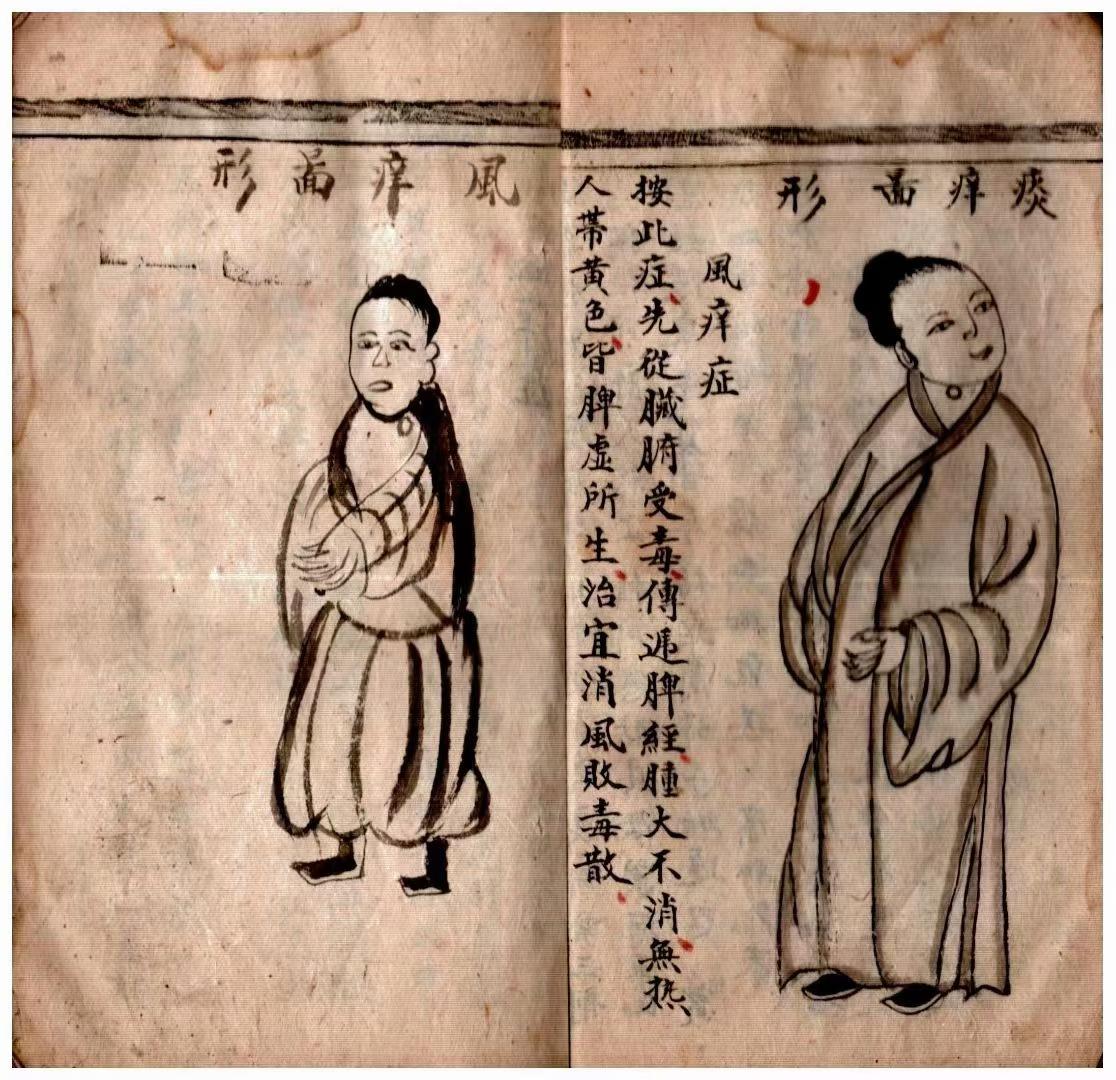 痰痒啚形
風痒症
按此症先從臟腑受毒傳遞脾經腫大不消無热
人帶黄色皆脾虚所生治宜消風敗毒散
風痒啚形